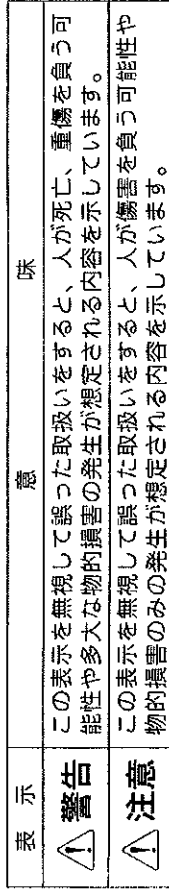 表　示　意　味
⚠警告　この表示を無視して誤った取扱いをすると、人が死亡、重傷を負う可
能性や多大な物的損害の発生が想定される内容を示しています。
⚠注意　この表示を無視して誤った取扱いをすると、人が傷害を負う可能性や
物的損害のみの発生が想定される内容を示しています。